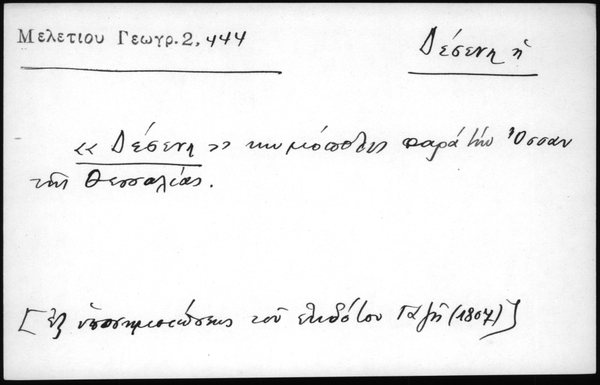 Μελετίου Γεωγρ. 2, 444
Δέσενη ἡ
«Δέσενη» κωμόπολις παρὰ τὴν Ὄσσαν
τῆς Θεσσαλίας.
[ἐξ ὑποσημειώσεως τοῦ ἐκδότου Γαζῆ (1807)]